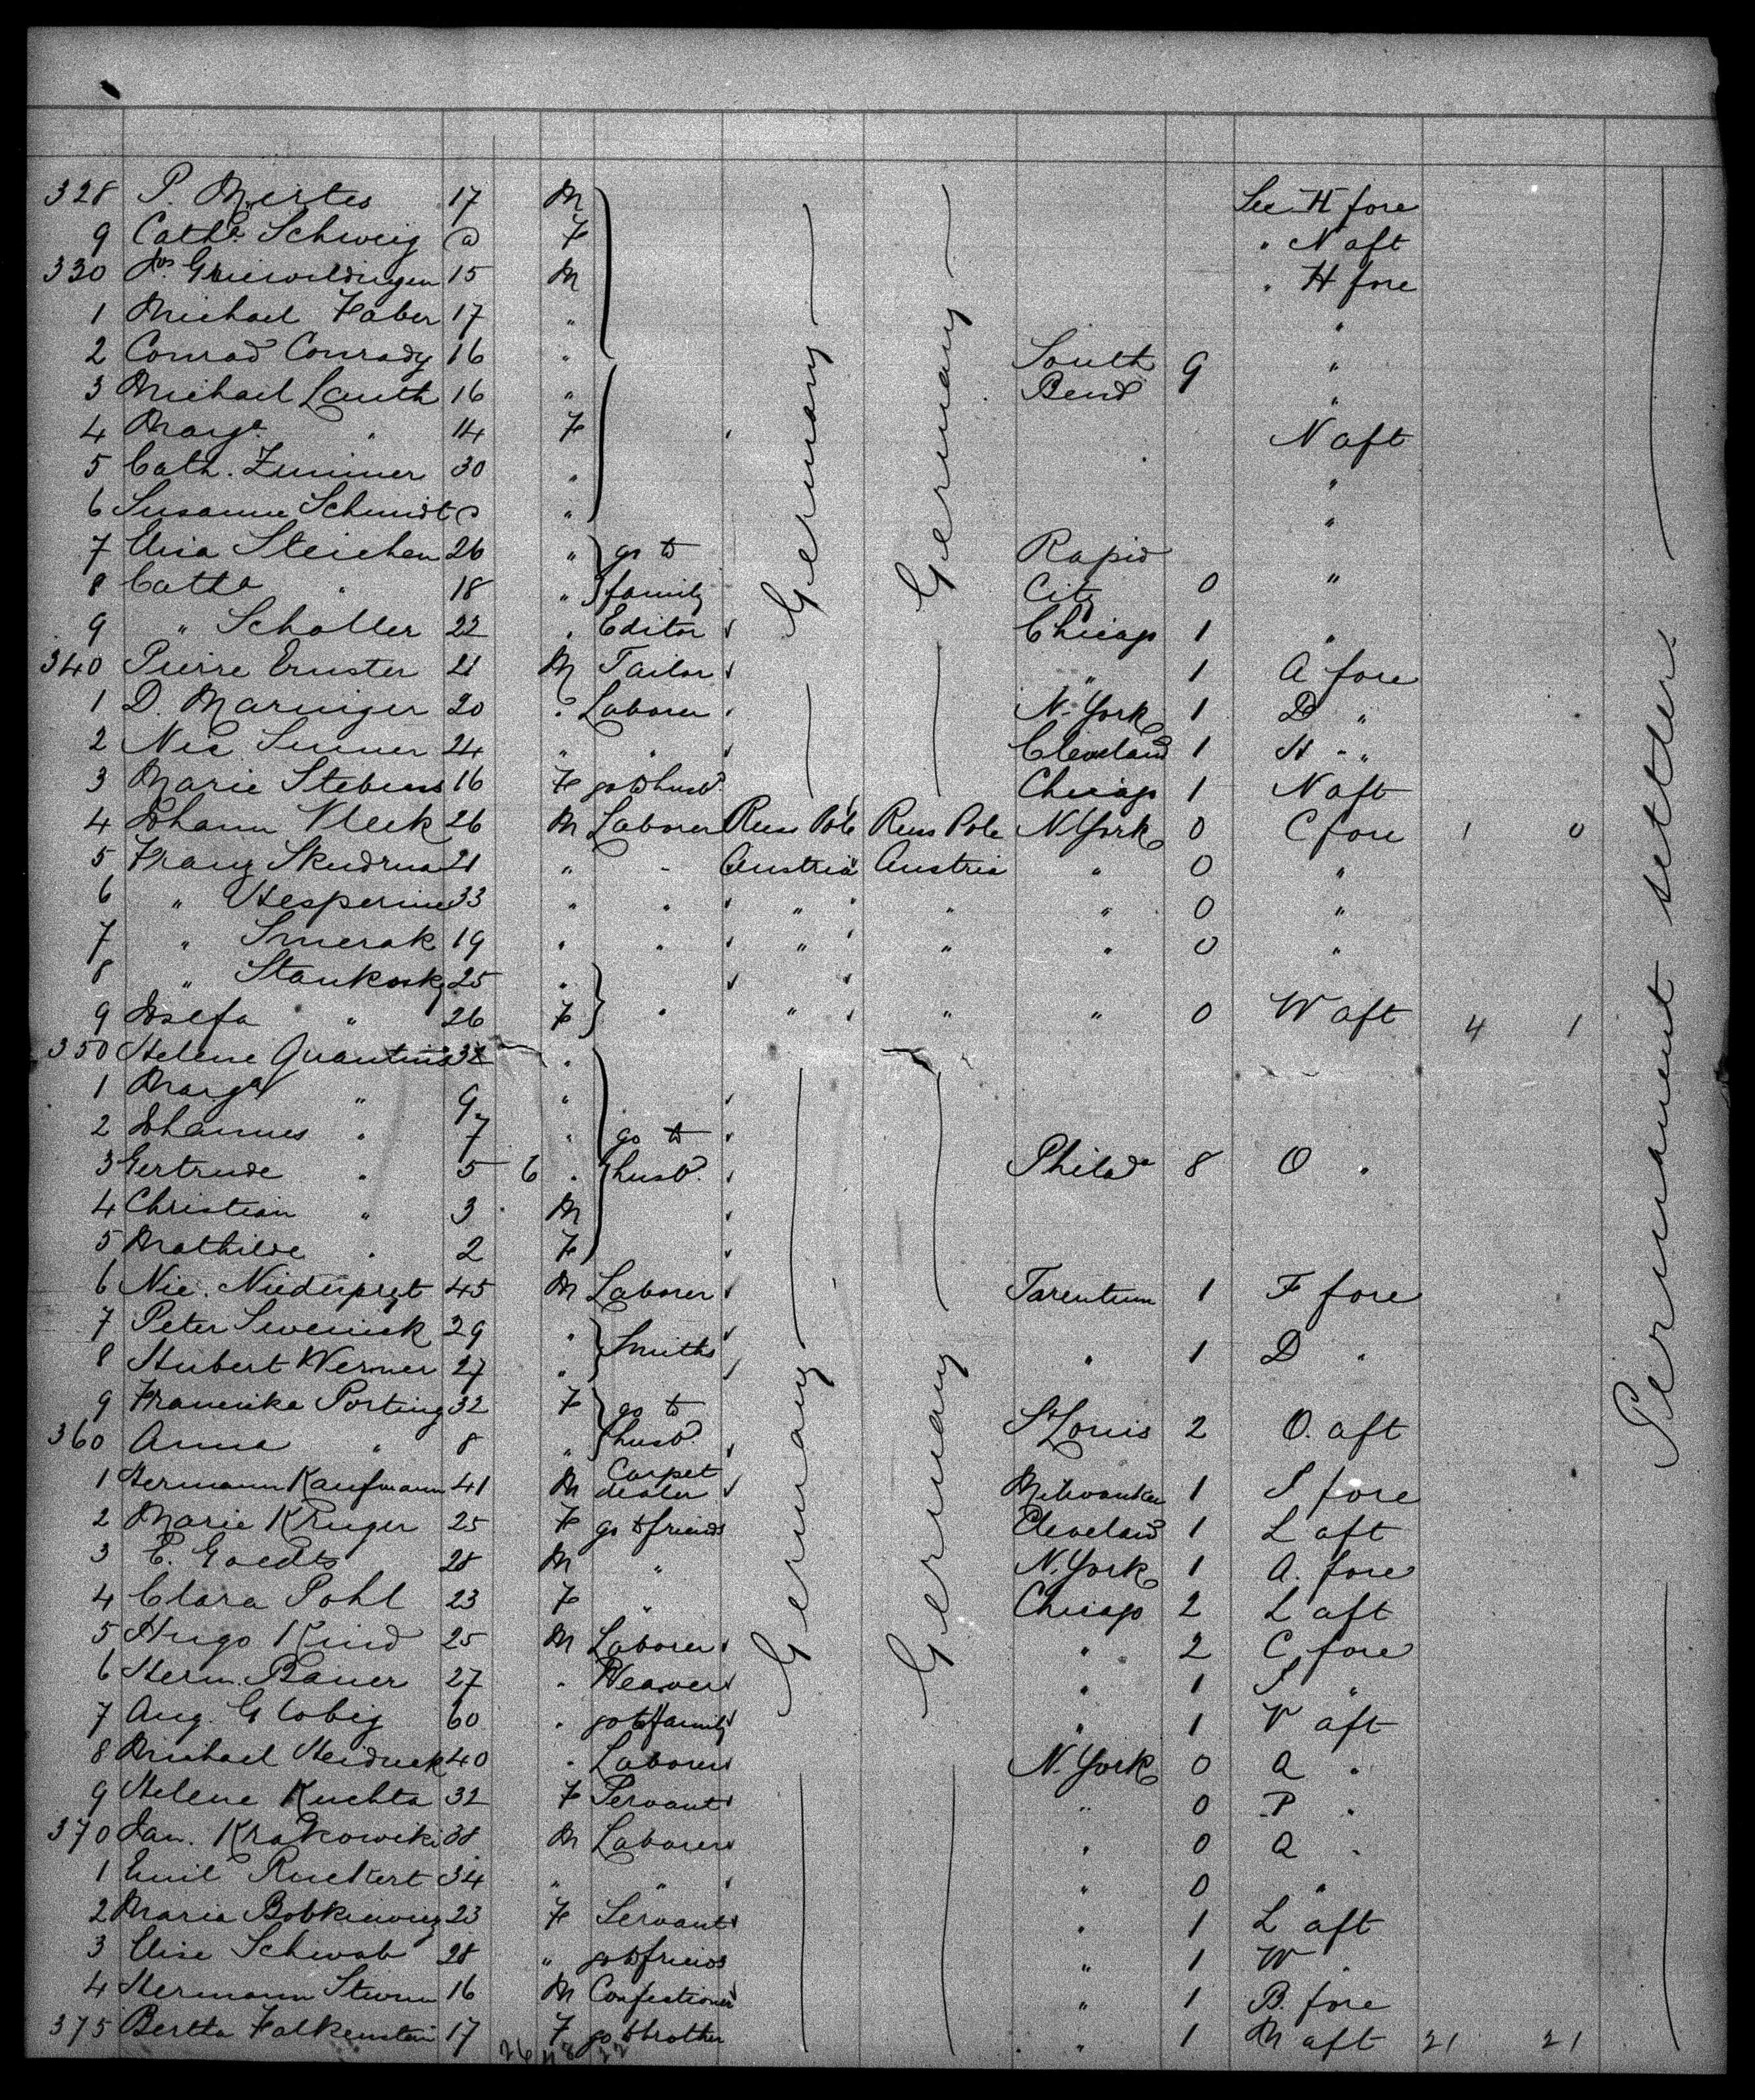 328 P. Mertes 17 M See H fore
9 Cath.a Schweig F " N aft
330 Jos. 15 M " H fore
1 Michael Faber 17 " "
2 Conrad Conrady 16 " South Bend 9 "
3 Michael Lauth 16 " "
4 Marg.a " 14 F N aft
5 Cath. Zimmer 30 " "
6 Susanne Schmidt " "
7 Elisa Steichen 26 " go to Rapid
8 Catha " 18 " family City 0 "
9 " Scholler 22 " Editor Chicago 1 "
340 Pierre Ernster 21 M Tailor " 1 A fore
1 D. Maringer 20 " Laborer N. York 1 D "
2 Nic 24 " " Cleveland 1 H "
3 Marie Stebens 16 F go to husb. Chicago 1 N aft
4 Johann Kleek 26 M Laborer Russ Pole Russ Pole N York 0 C fore 1 0
5 Franz Skudrna 21 " " Austria Austria " 0 "
6 " 33 " " " " " 0 "
7 " Smerak 19 " " " " " 0 "
8 " Stankosky 25 "
9 Josefa " 26 F " " " " 0 W aft 4 1
350 Helene Quantins 32 "
1 Marg.a " 9 "
2 Johannes " 7 " go to
3 Gertrude " 5 6 " husb. Philad.a 8 O "
4 Christian " 3 M
5 Mathilde " 2 F
6 Nic. 45 M Laborer Tarentum 1 F fore
7 Peter 29 " Smiths " 1 D "
8 Hubert Werner 27 "
9 Franciska Porting 32 F go to St Louis 2 O. aft
360 Anna " 8 " husb.
1 Hermann Kaufmann 41 M Carpet dealer Milwaukee 1 S fore
2 Marie Kruger 25 F go to friends Cleveland 1 L aft
3 E. Goedts 28 M " N. York 1 A. fore
4 Clara Pohl 23 F " Chicago 2 L aft
5 Hugo Kind 25 M Laborer " 2 C fore
6 Herm. Bauer 27 " Weaver " 1 S "
7 Aug. Globig 60 " go to family " 1 V aft
8 Michael Heiduck 40 " Laborer N. York 0 Q "
9 Helene Kuchta 32 F Servant " 0 P "
370 Jan. Krakowiki 38 M Laborer " 0 Q "
1 Emil Ruckert 34 " " " 0 "
2 Maria Bobkiewicz 23 F Servant " 1 L aft
3 Elise Schwab 28 " go to friends " 1 W "
4 Hermann 16 M Confectioner " 1 B. fore
375 Bertha Falkenstein 17 F go to brother " 1 M aft 21 21
26 22
Germany
Germany
Germany
Germany
Permanent settler